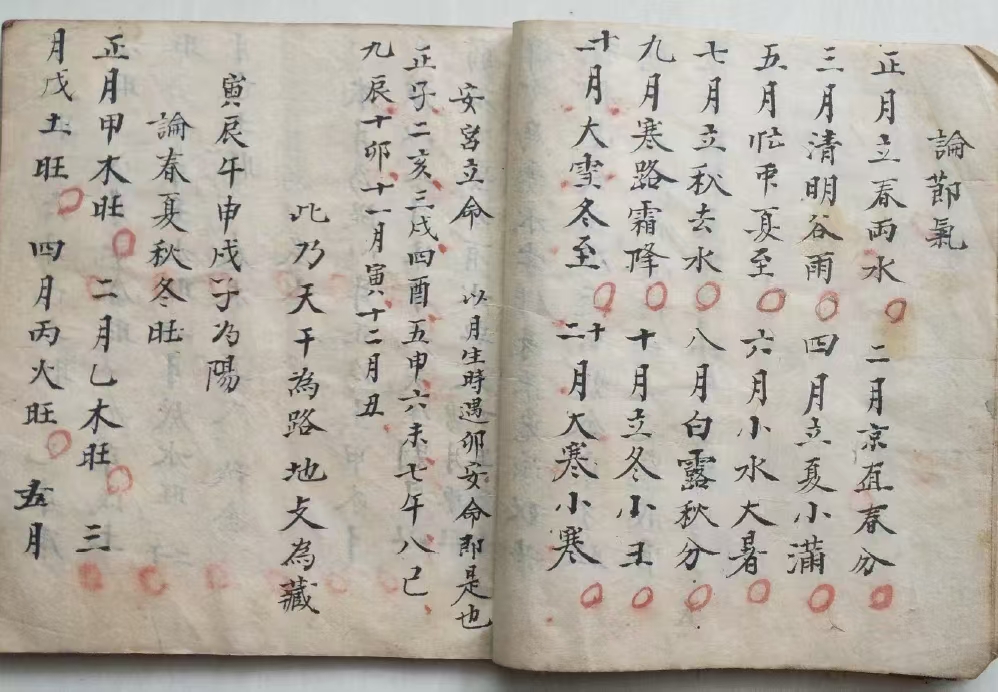 論節氣
正月立春雨水 二月京直春分
三月清明谷雨 四月立夏小滿
五月忙中夏至 六月小水大暑
七月立秋去水 八月白露秋分
九月寒路霜降 十月立冬小
十一月大雪冬至 十二月大寒小寒
安宮立命 以月生時遇卯安命即是也
正子二亥三戌四酉五申六未七午八巳
九辰十卯十一月寅十二月丑
此乃天干為路地支為藏
寅辰午申戌子为陽
論春夏秋冬旺
正月甲木旺 二月乙木旺 三
月戊土旺 四月丙火旺 五月